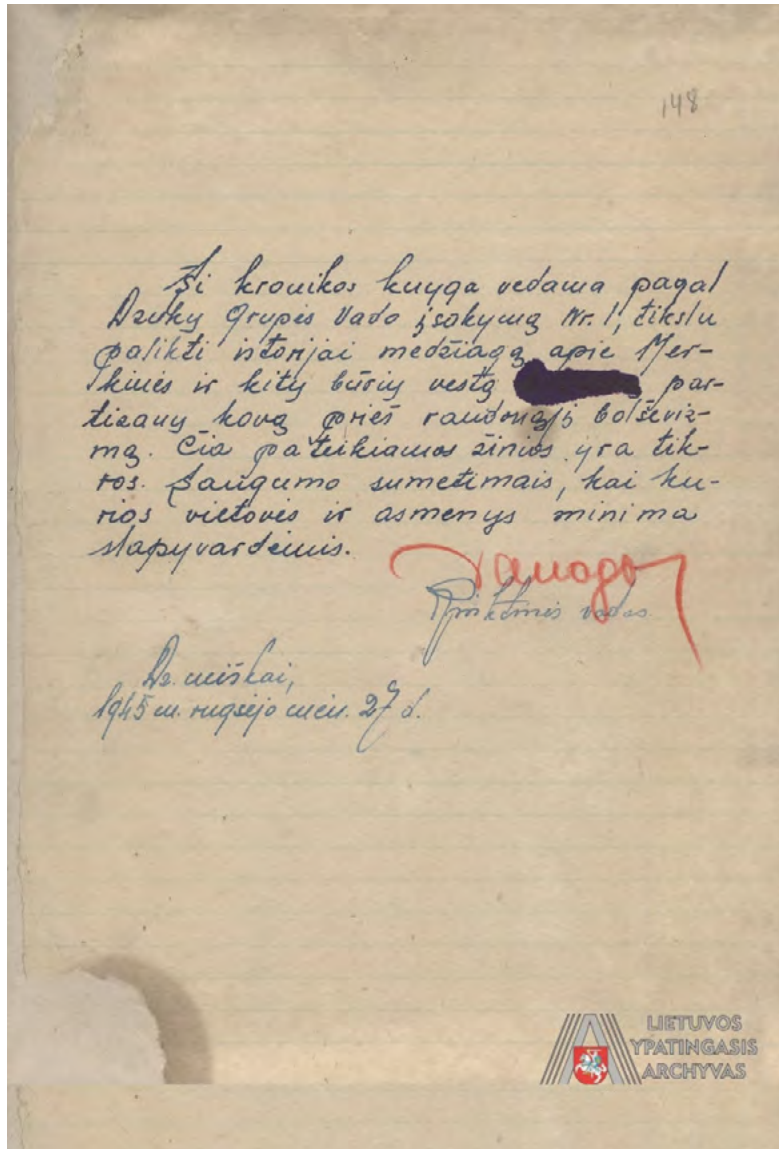 148
Ši kronikos knyga vedama pagal
Dzukų Grupės Vado įsakymą Nr. 1, tikslu
palikti istorijai medžiagą apie Mer-
kinės ir kitų būrių vestą par-
tizanų kovą prieš raudonąjį bolševiz-
mą. Čia pateikiamos žinios yra tik-
ros. Saugumo sumetimais, kai ku-
rios vietovės ir asmenys minima
slapyvardėmis.
Vanagas
Rinktinės vadas
Dz. miškai,
1945 m. rugsėjo mėn. 27 d.
LIETUVOS
YPATINGASIS
ARCHYVAS